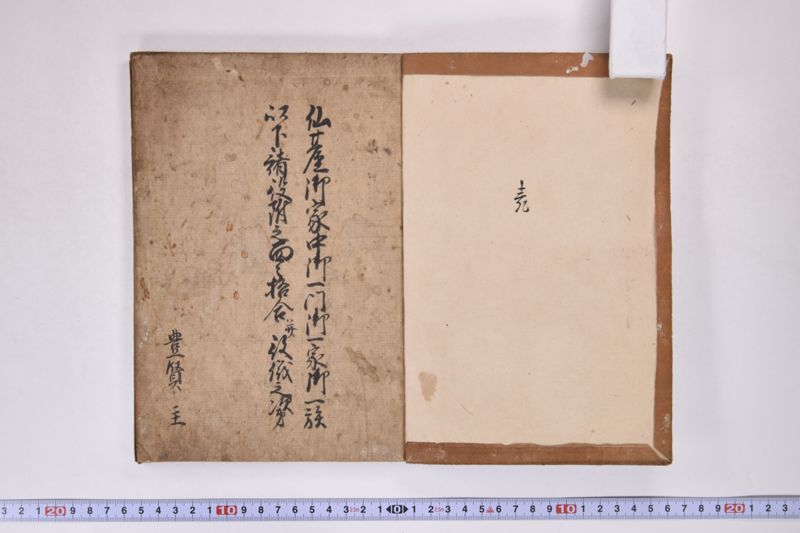 壱
仙䑓御家中御一門御一家御一族
以下諸役附之面々格合并役職之次第
豊賢 主
3 2 1 20 9 8 7 6 5 4 3 2 1 10 9 8 7 6 5 4 3 2 1 0 1 2 3 4 5 6 7 8 9 10 1 2 3 4 5 6 7 8 9 20 1 2 3